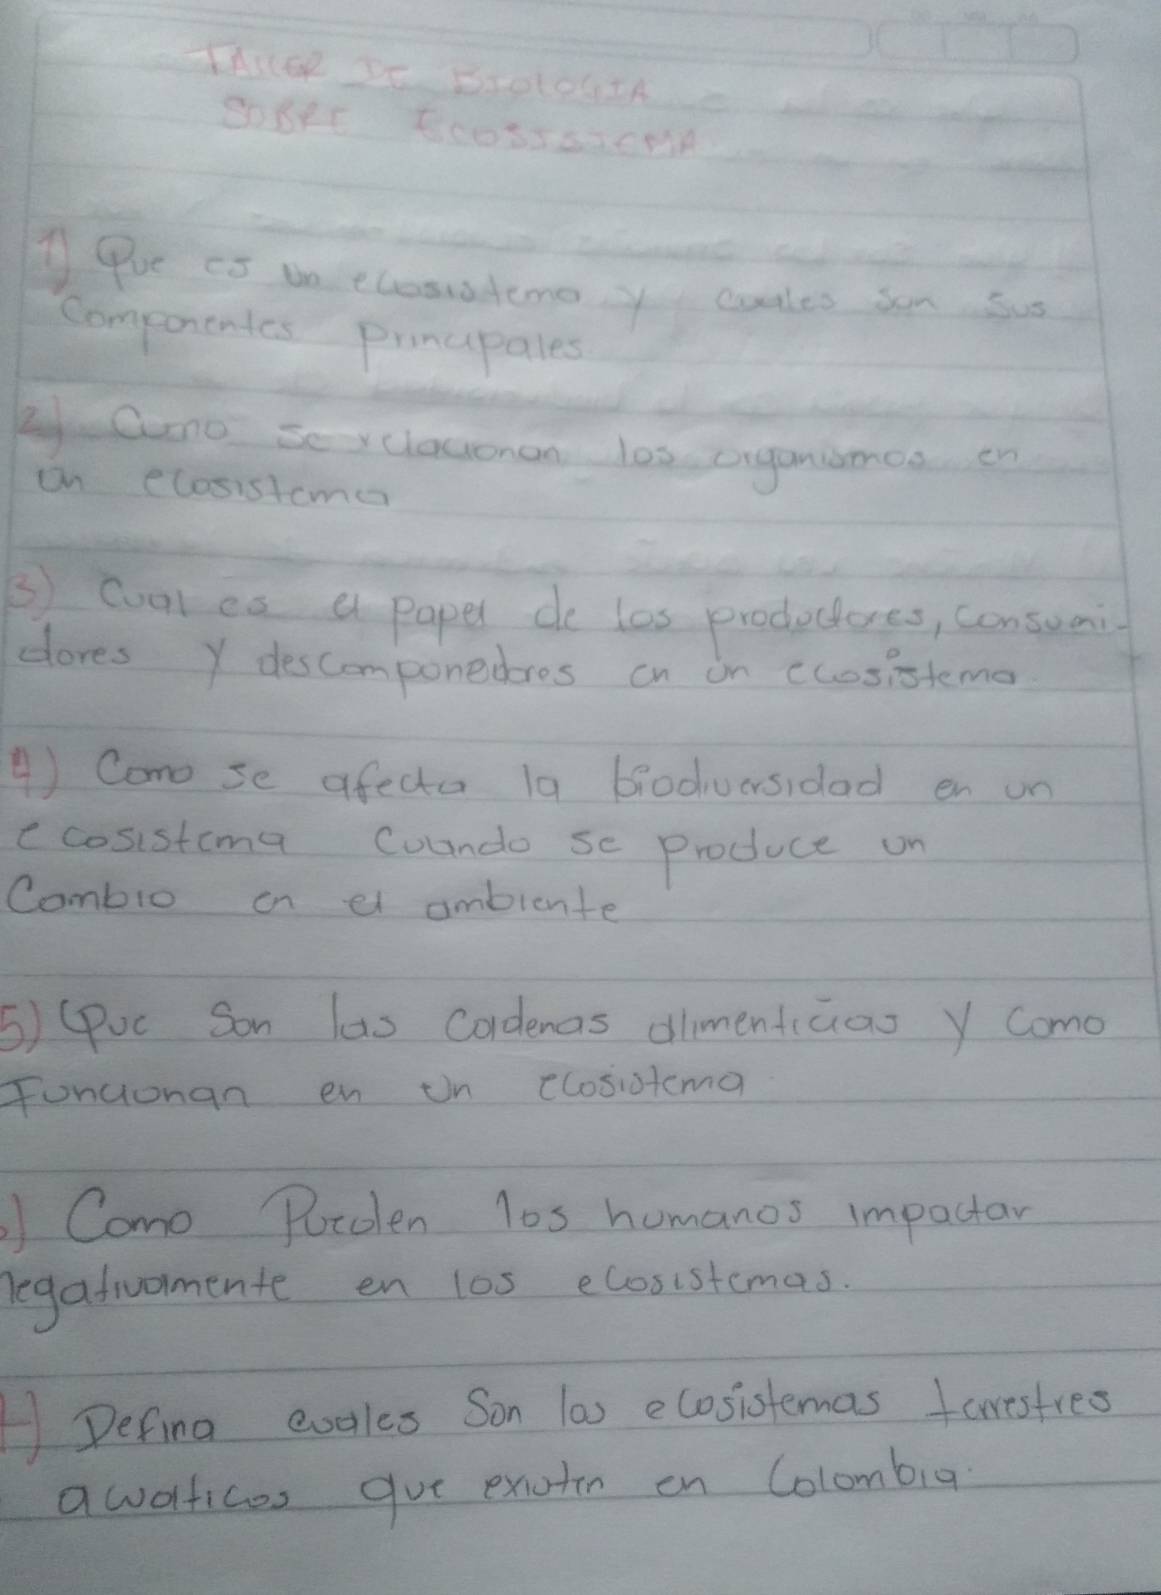 TALLER DE BIOLOGIA
SOBRE ECOSISTEMA
1) Que es un ecosistema y cuales son sus
Componentes principales
2) Como se relacionan los organismos en
un ecosistema
3) Cual es el papel de los productores, consumi-
dores y descomponedores en un ecosistema.
4) Como se afecta la biodiversidad en un
ecosistema Cuando se produce un
Cambio en el ambiente
5) Que Son las Cadenas alimenticias y como
Funcionan en un ecosistema.
) Como Pueden los humanos impactar
negativamente en los ecosistemas.
) Defina cuales Son los ecosistemas terrestres
acuaticos que existen en Colombia.